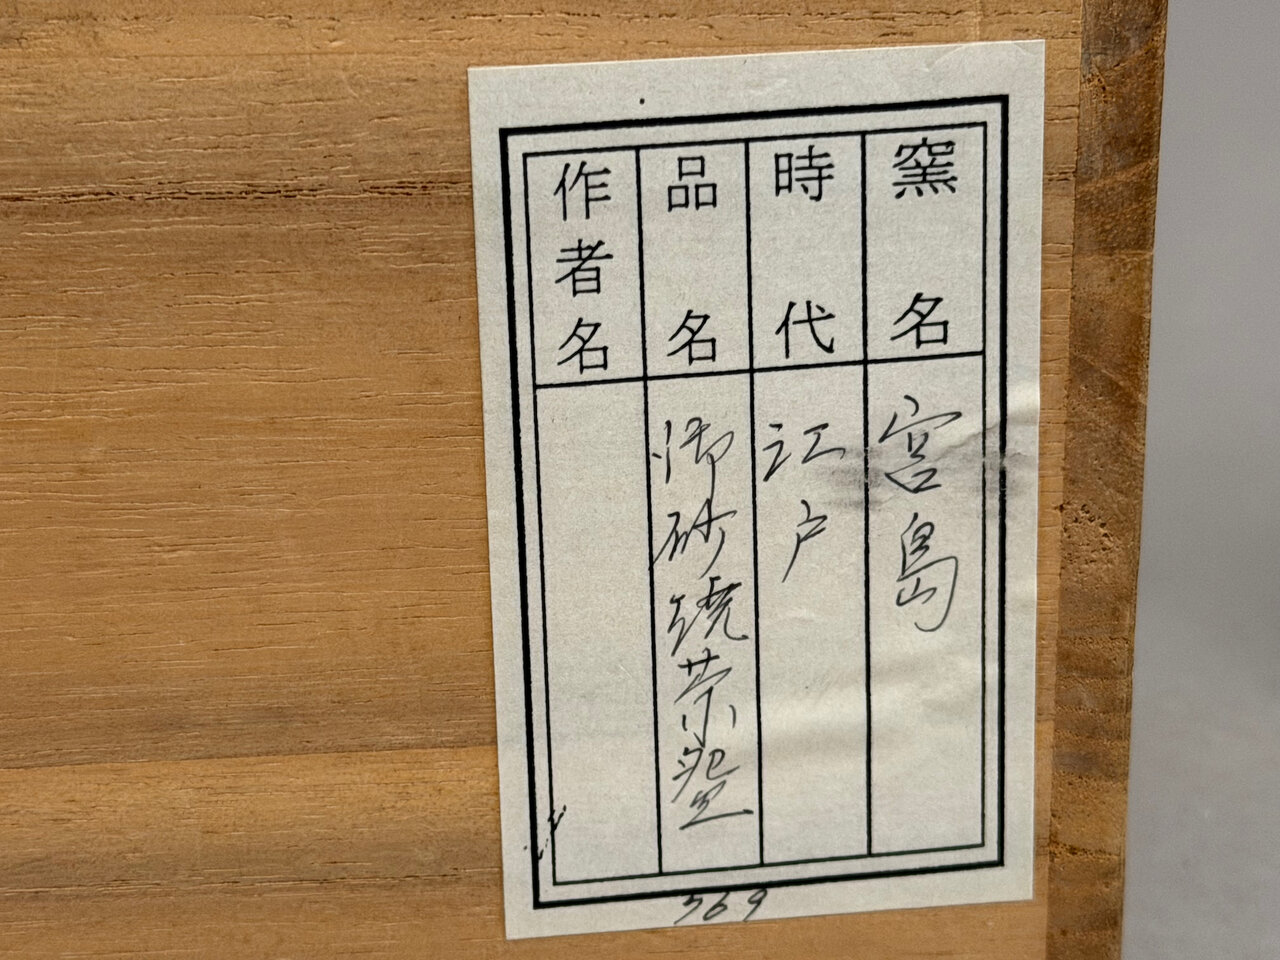 窯名 宮島
時代 江戸
品名 御砂焼茶盌
作者名
569